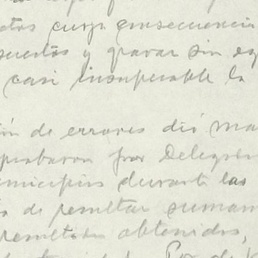 tos cuya consecuencia
puestos y gravar sin eq
casi insuperable la
ión de errores dió ma
probaron por Delega
municipios durante las
s de resultar suman
resultados obtenidos,